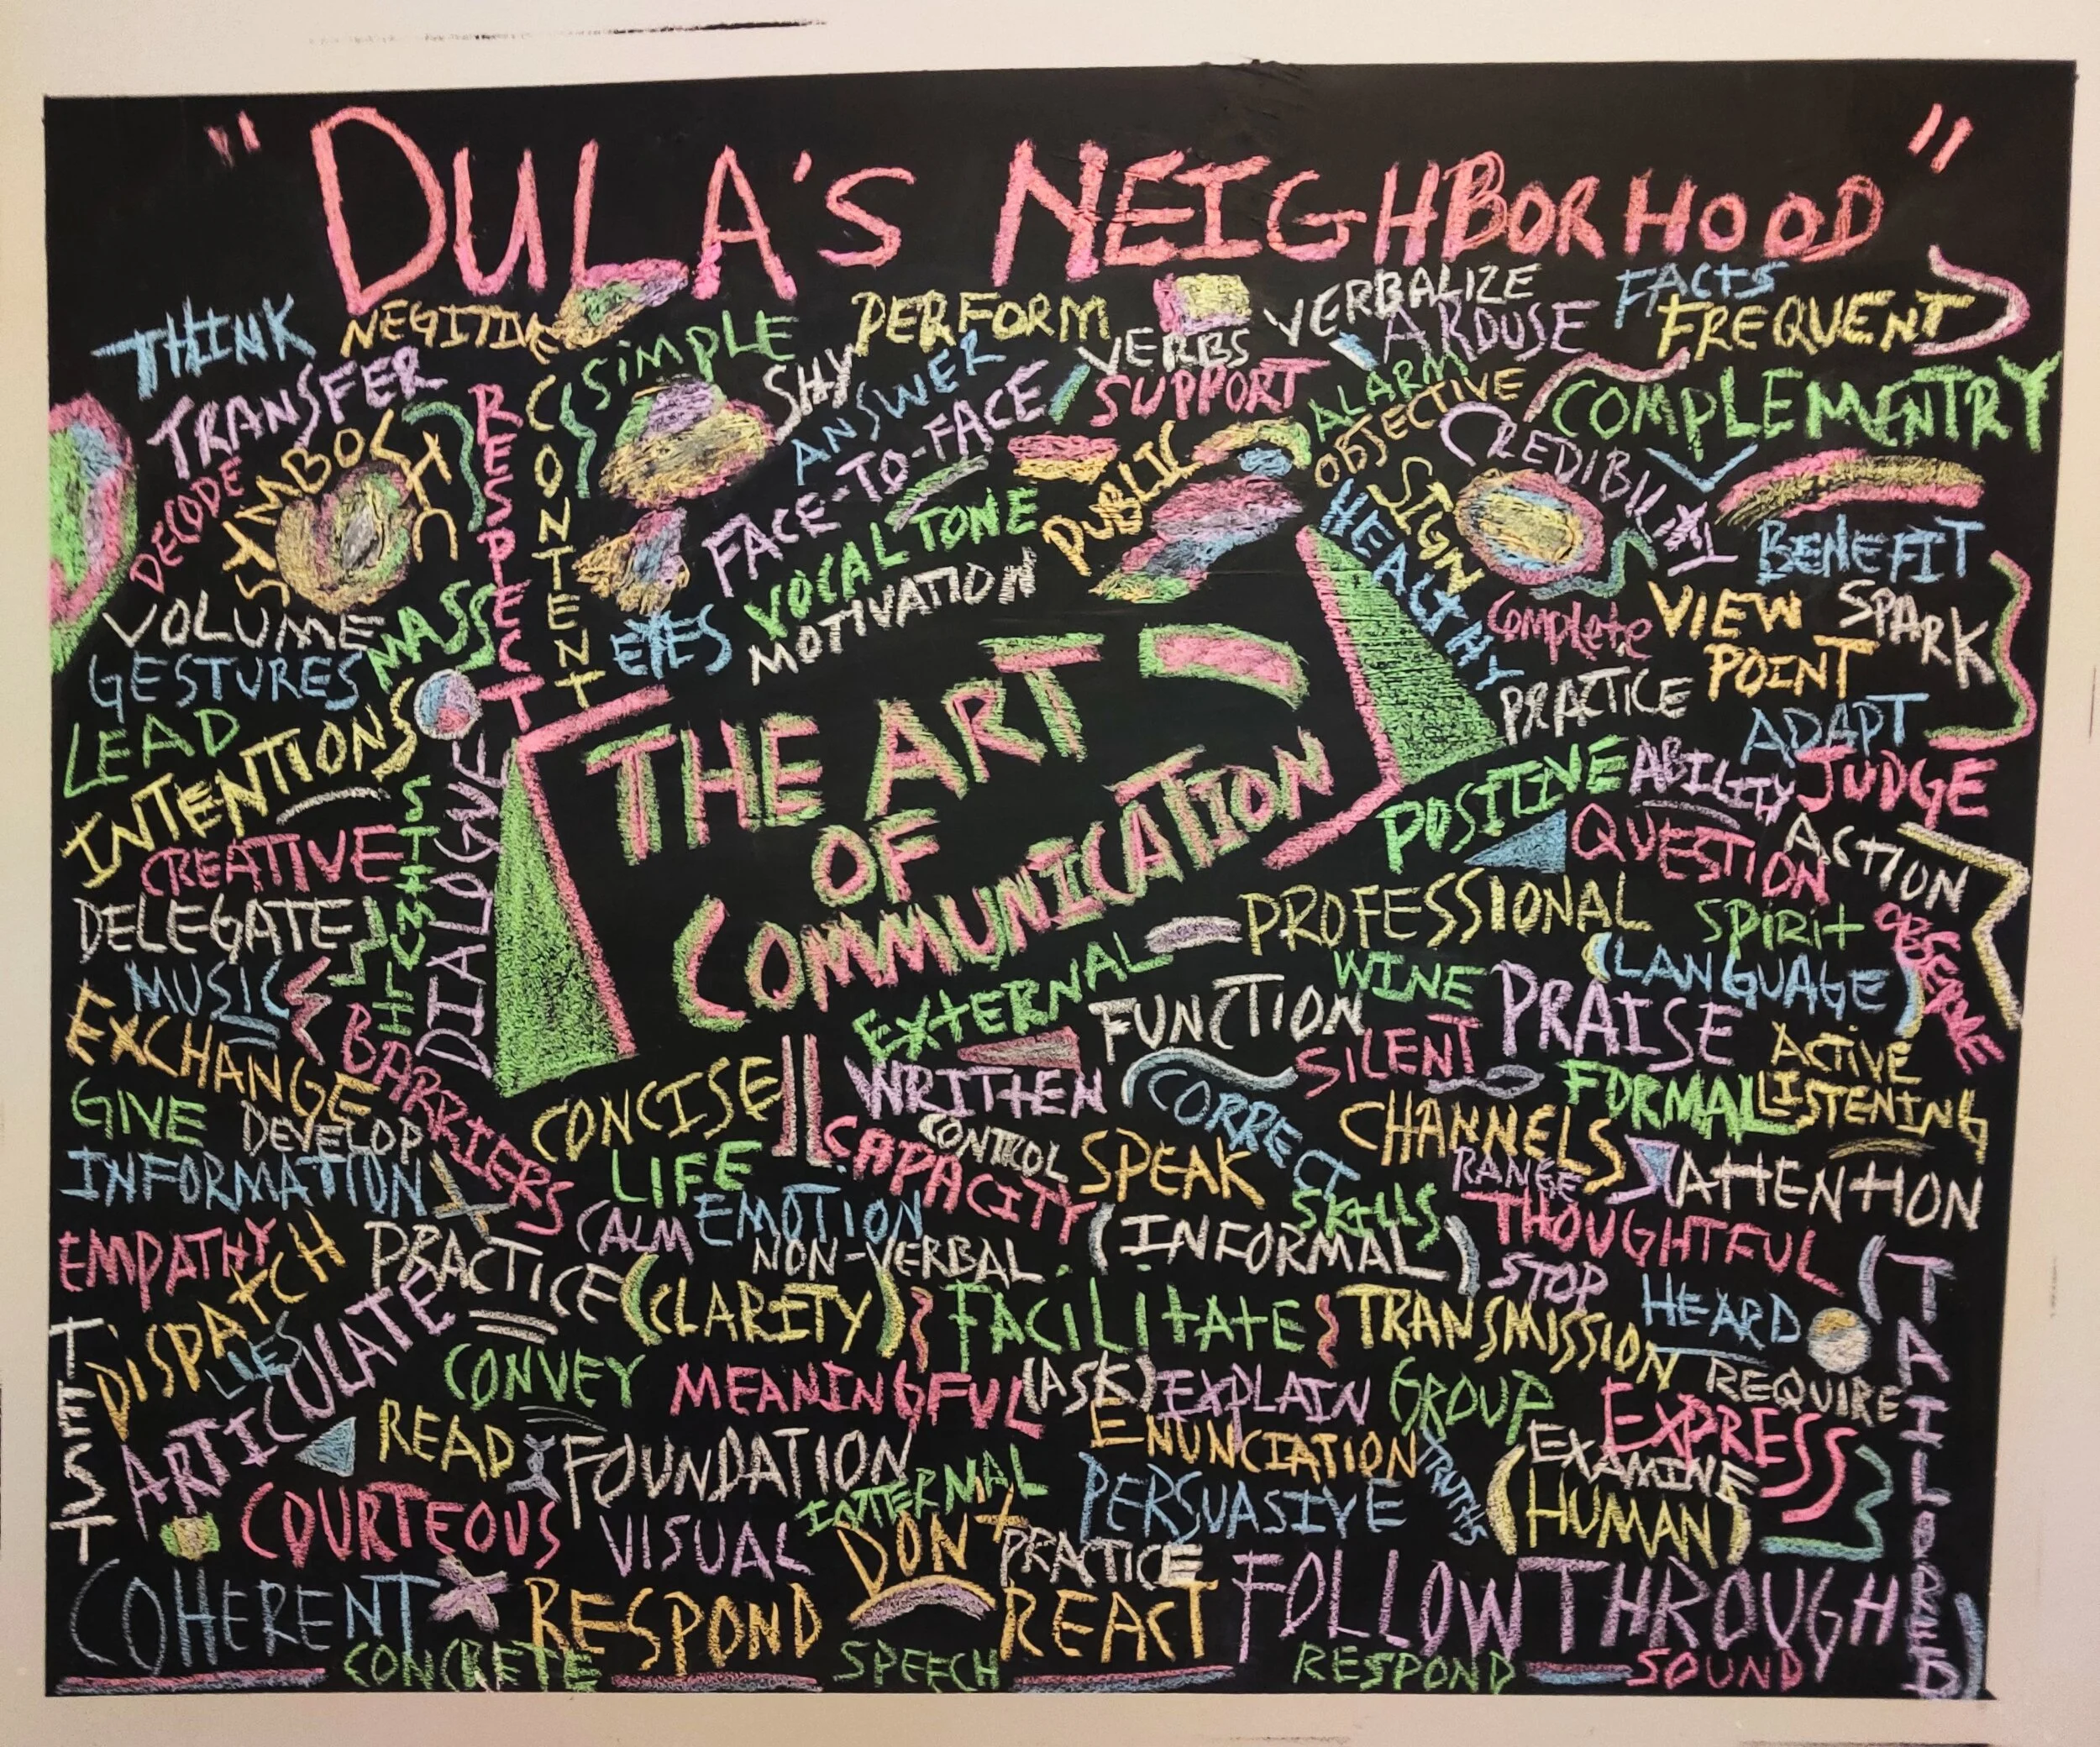 "DULA'S NEIGHBORHOOD"
THINK
NEGITIVE
SIMPLE
PERFORM
VERBS
VERBALIZE
AROUSE
FACTS
FREQUENT
TRANSFER
RESPECT
CONTENT
SHY
ANSWER
SUPPORT
ALARM
OBJECTIVE
COMPLEMENTRY
DECODE
SYMBOL
FACE-TO-FACE
PUBLIC
SIGN
CREDIBILITY
VOCAL TONE
HEALTHY
BENEFIT
VOLUME
MASS
EYES
MOTIVATION
Complete
VIEW
POINT
SPARK
GESTURES
PRACTICE
LEAD
INTENTIONS
THE ART
OF
COMMUNICATION
ADAPT
POSITIVE
ABILITY
JUDGE
CREATIVE
STIMULI
DIALOGUE
QUESTION
ACTION
DELEGATE
PROFESSIONAL
SPIRIT
OBSERVE
MUSIC
EXTERNAL
WINE
(LANGUAGE)
EXCHANGE
BARRIERS
FUNCTION
SILENT
PRAISE
ACTIVE
LISTENING
GIVE
DEVELOP
CONCISE
WRITTEN
CORRECT
CHANNELS
FORMAL
INFORMATION
LIFE
CAPACITY
CONTROL
SPEAK
RANGE
ATTENTION
EMPATHY
CALM
EMOTION
SKILLS
THOUGHTFUL
DISPATCH
PRACTICE
NON-VERBAL
(INFORMAL)
STOP
HEARD
(TAILORED)
TEST
LIES
ARTICULATE
(CLARITY)
FACILITATE
TRANSMISSION
REQUIRE
CONVEY
MEANINGFUL
(ASK)
EXPLAIN
GROUP
EXPRESS
READ
FOUNDATION
ENUNCIATION
TRUTHS
EXAMINE
COURTEOUS
VISUAL
INTERNAL
PERSUASIVE
(HUMAN)
DON
PRACTICE
COHERENT
RESPOND
REACT
FOLLOW THROUGH
CONCRETE
SPEECH
RESPOND
SOUND